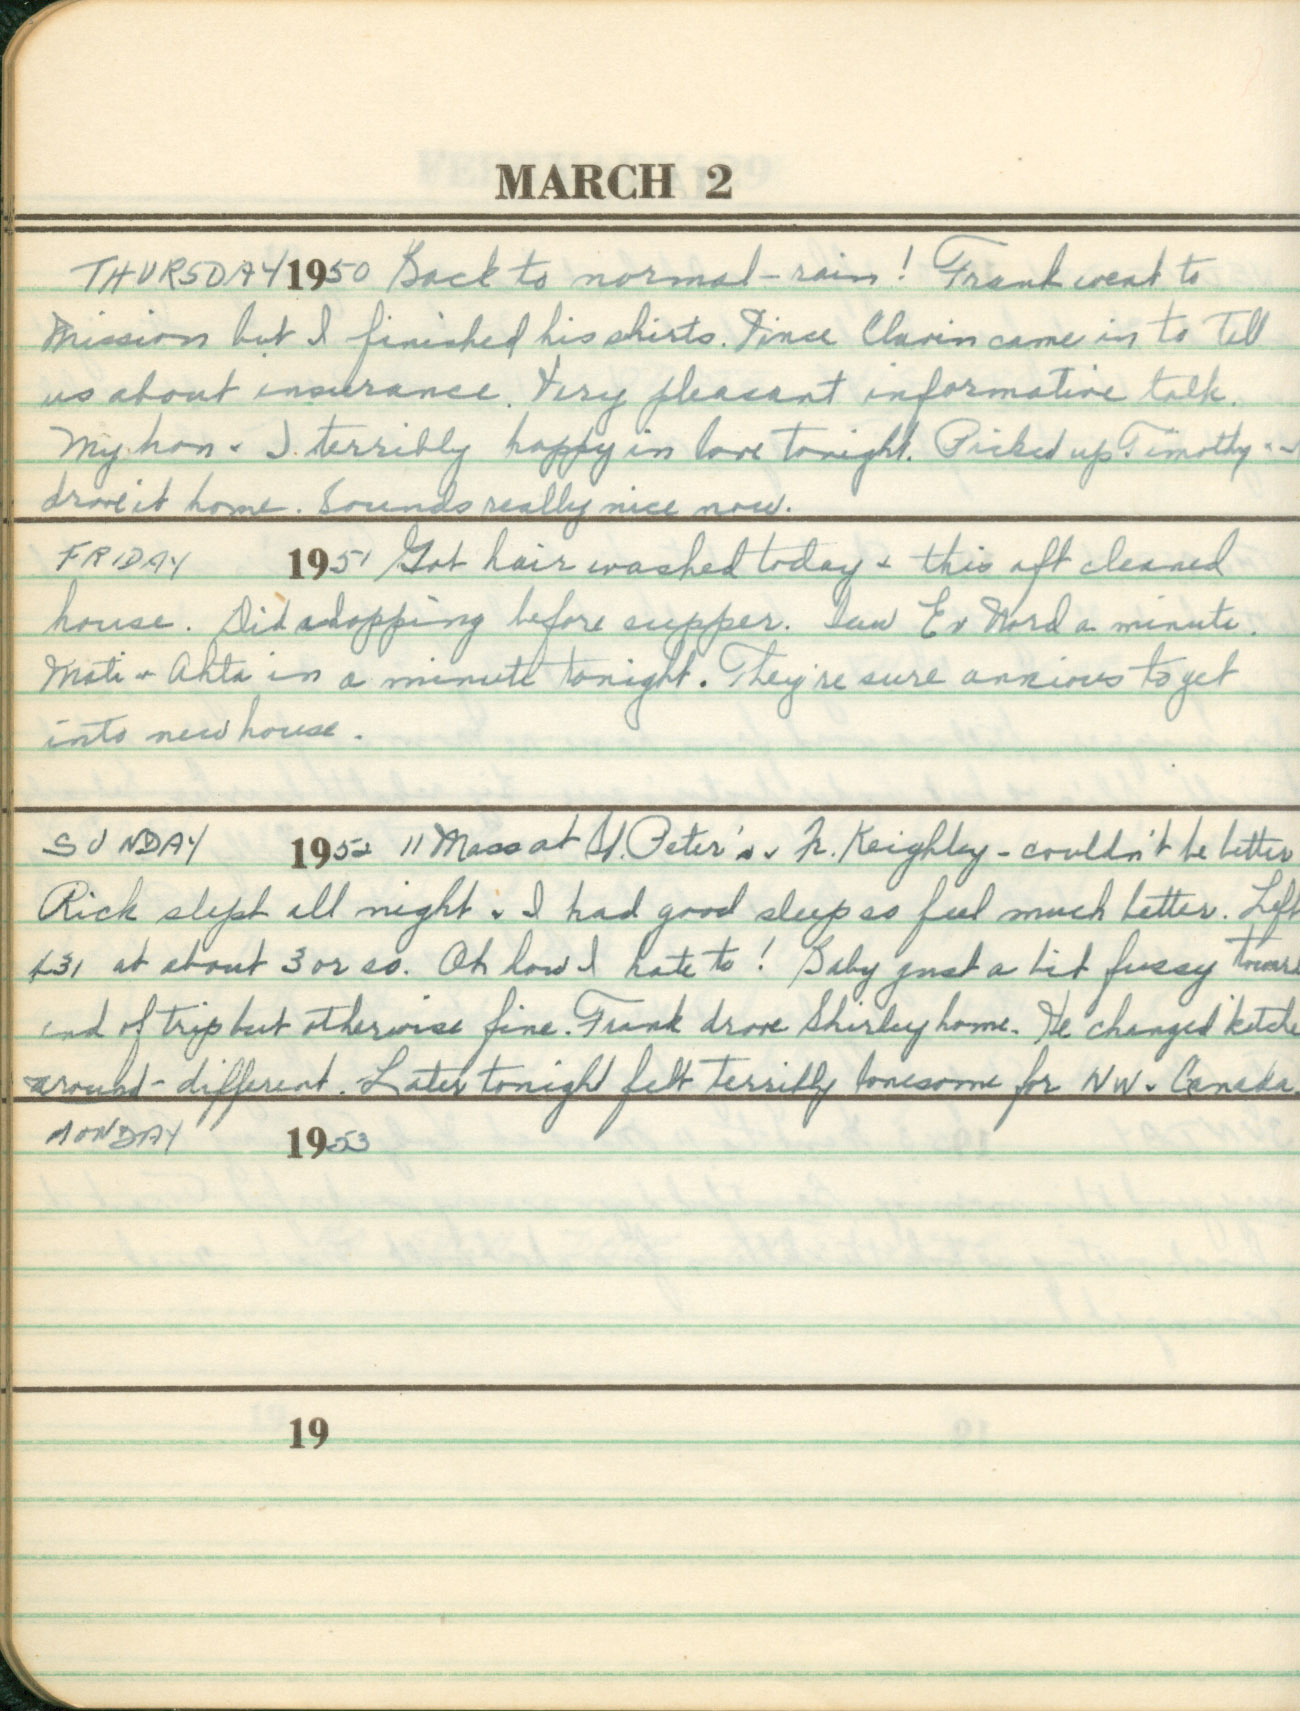 MARCH 2
THURSDAY 1950 Back to normal - rain! Frank went to
Mission but I finished his shirts. Vince Clavin came in to tell
us about insurance. Very pleasant informative talk.
My hon + I terribly happy in love tonight. Picked up Timothy +
drove it home. Sounds really nice now.
FRIDAY 1951 Got hair washed today + this aft cleaned
house. Did shopping before supper. Saw Ev Nord a minute.
Mati + Ahta in a minute tonight. They're sure anxious to get
into new house.
SUNDAY 1952 11 Mass at St. Peter's + Fr. Keighley - couldn't be better
Rick slept all night + I had good sleep so feel much better. Left
at about 3 or so. Oh how I hate to! Baby just a bit fussy toward
end of trip but otherwise fine. Frank drove Shirley home. He changed kitche
around - different. Later tonight felt terribly lonesome for NW + Canada.
MONDAY 1953
19